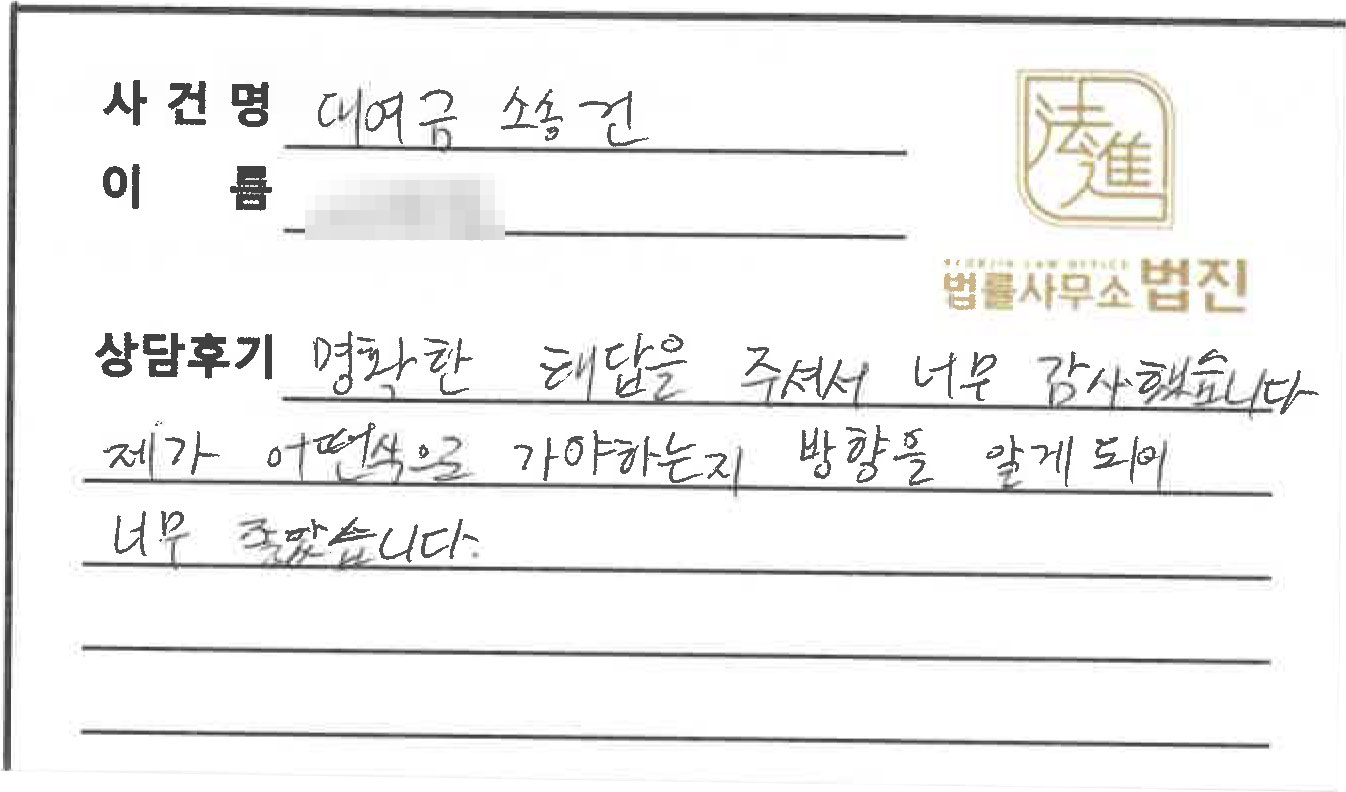 사 건 명 대여금 소송 건
이 름
法進
BEOBJIN LAW OFFICE
법률사무소 법진
상담후기 명확한 해답을 주셔서 너무 감사했습니다
제가 어떤식으로 가야하는지 방향을 알게 되어
너무 좋았습니다.